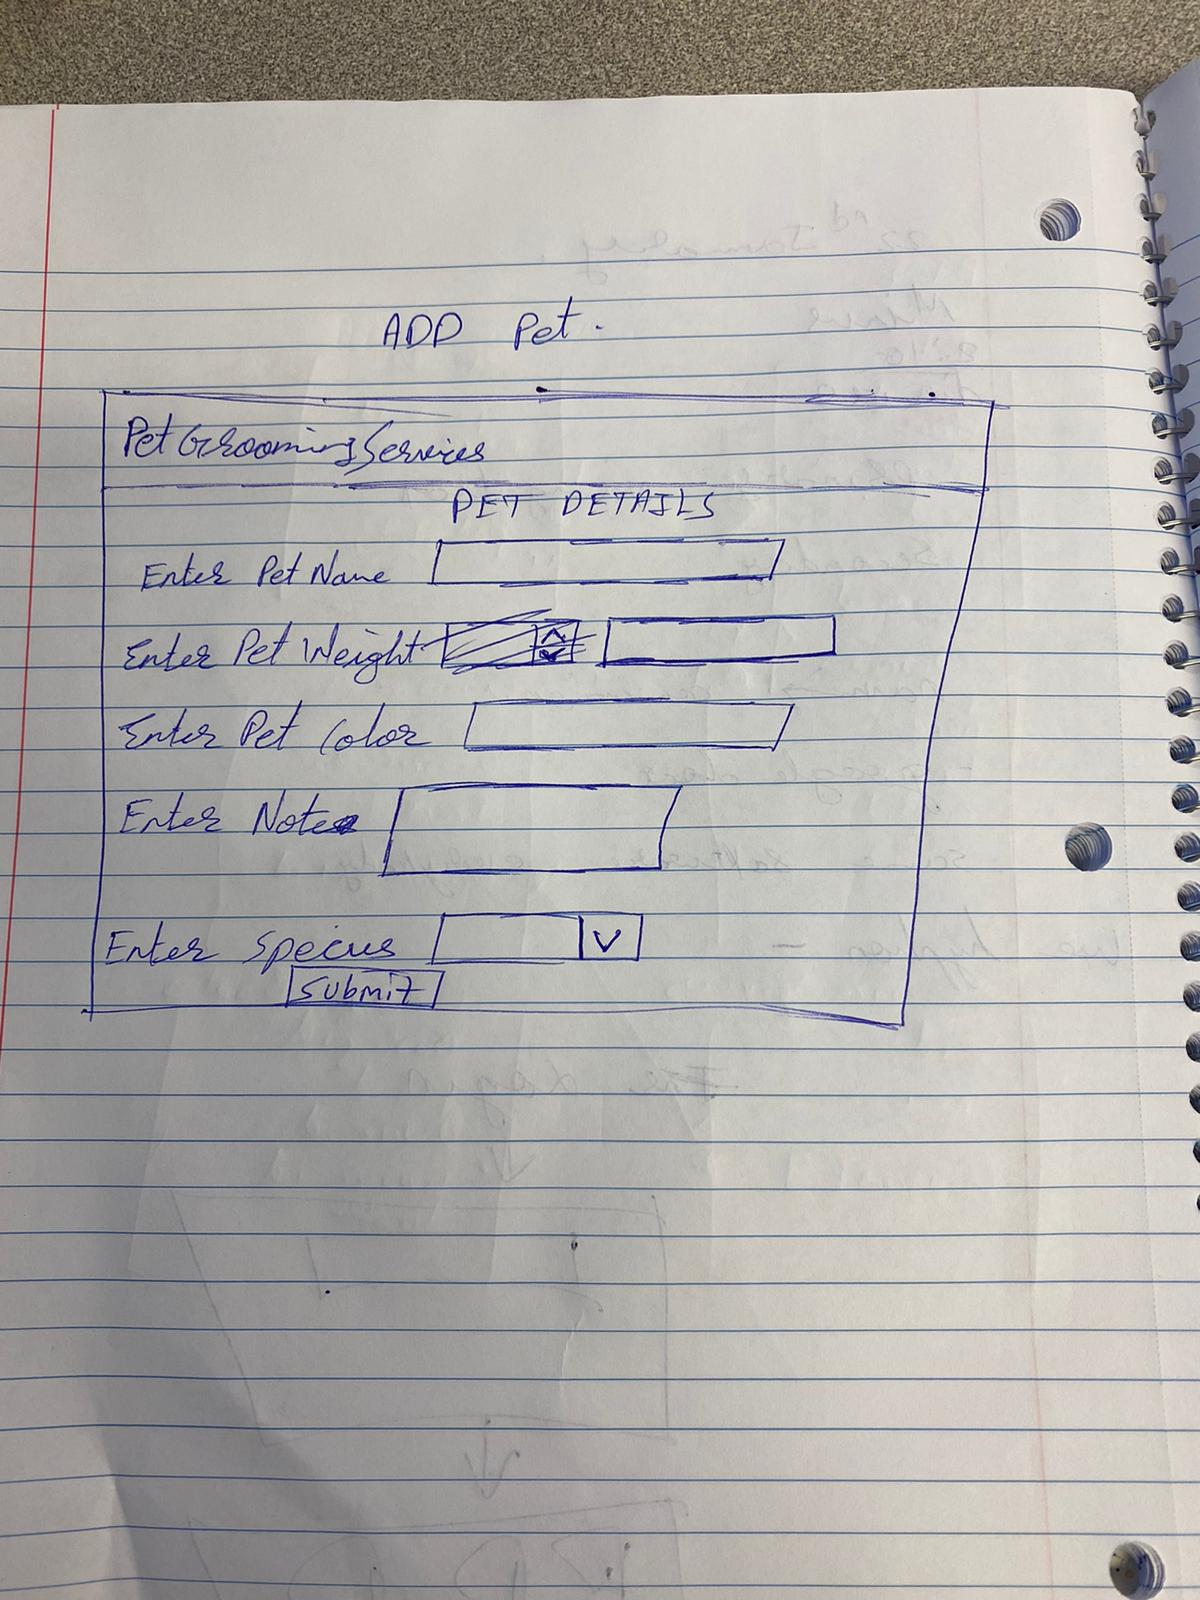 ADD Pet.
Pet Grooming Services
PET DETAILS
Enter Pet Name
Enter Pet Weight
Enter Pet Color
Enter Note
Enter Species
Submit